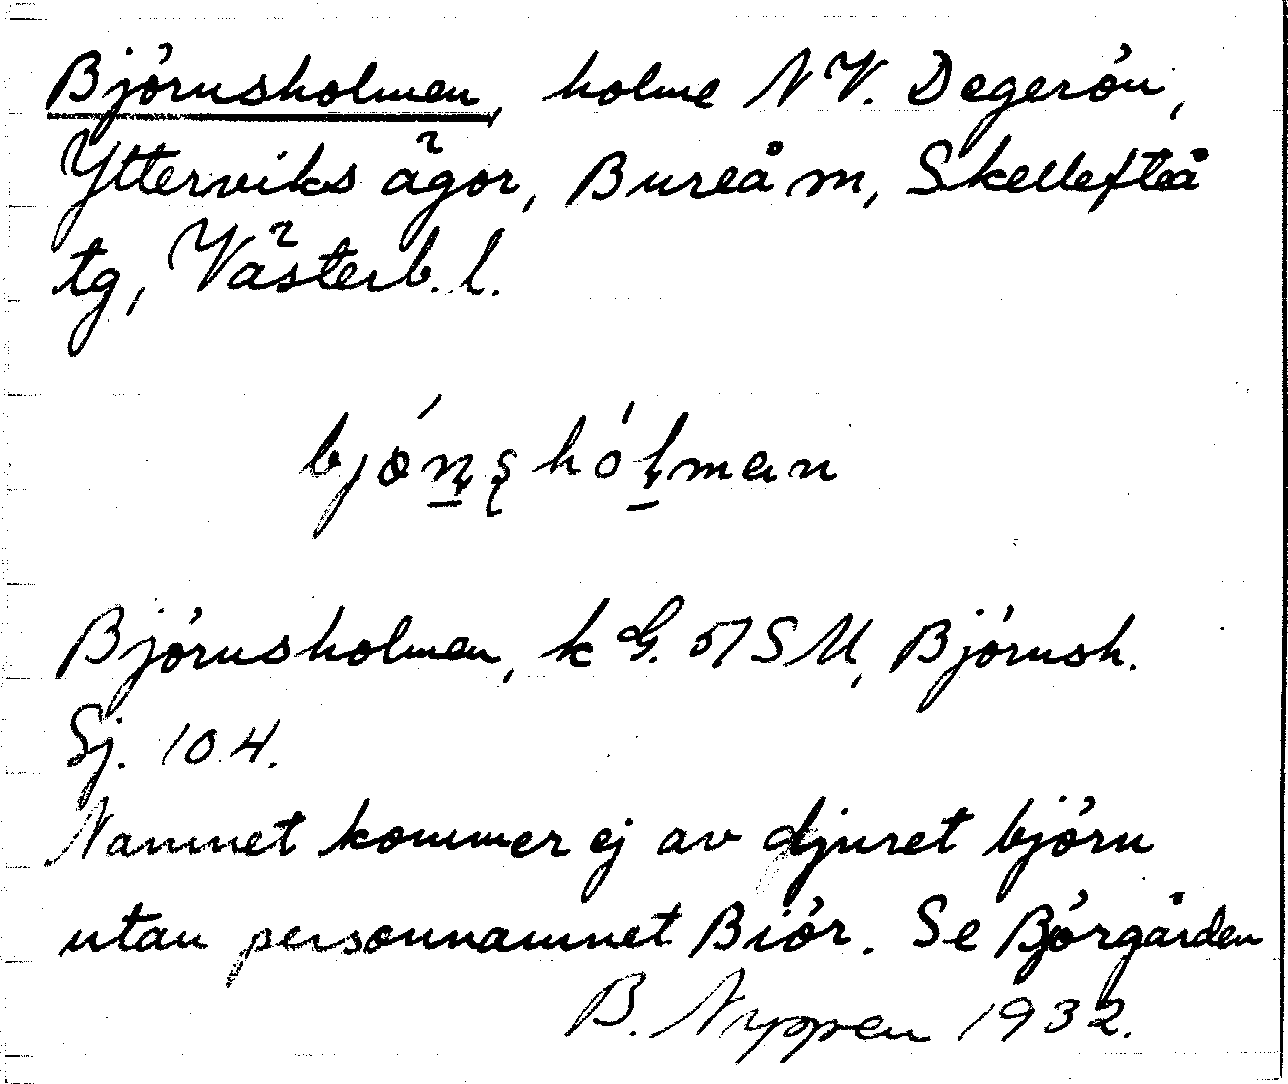 Björnsholmen, holme NV. Degerön,
Ytterviks ägor, Bureå m, Skellefteå
tg, Västerb. l.
bjǿn̲ʂhólman
Björnsholmen, k G. 57 SM, Björnsh.
Sj. 104.
Namnet kommer ej av djuret björn
utan personnamnet Biör. Se Björgården
B. Nyppen 1932.